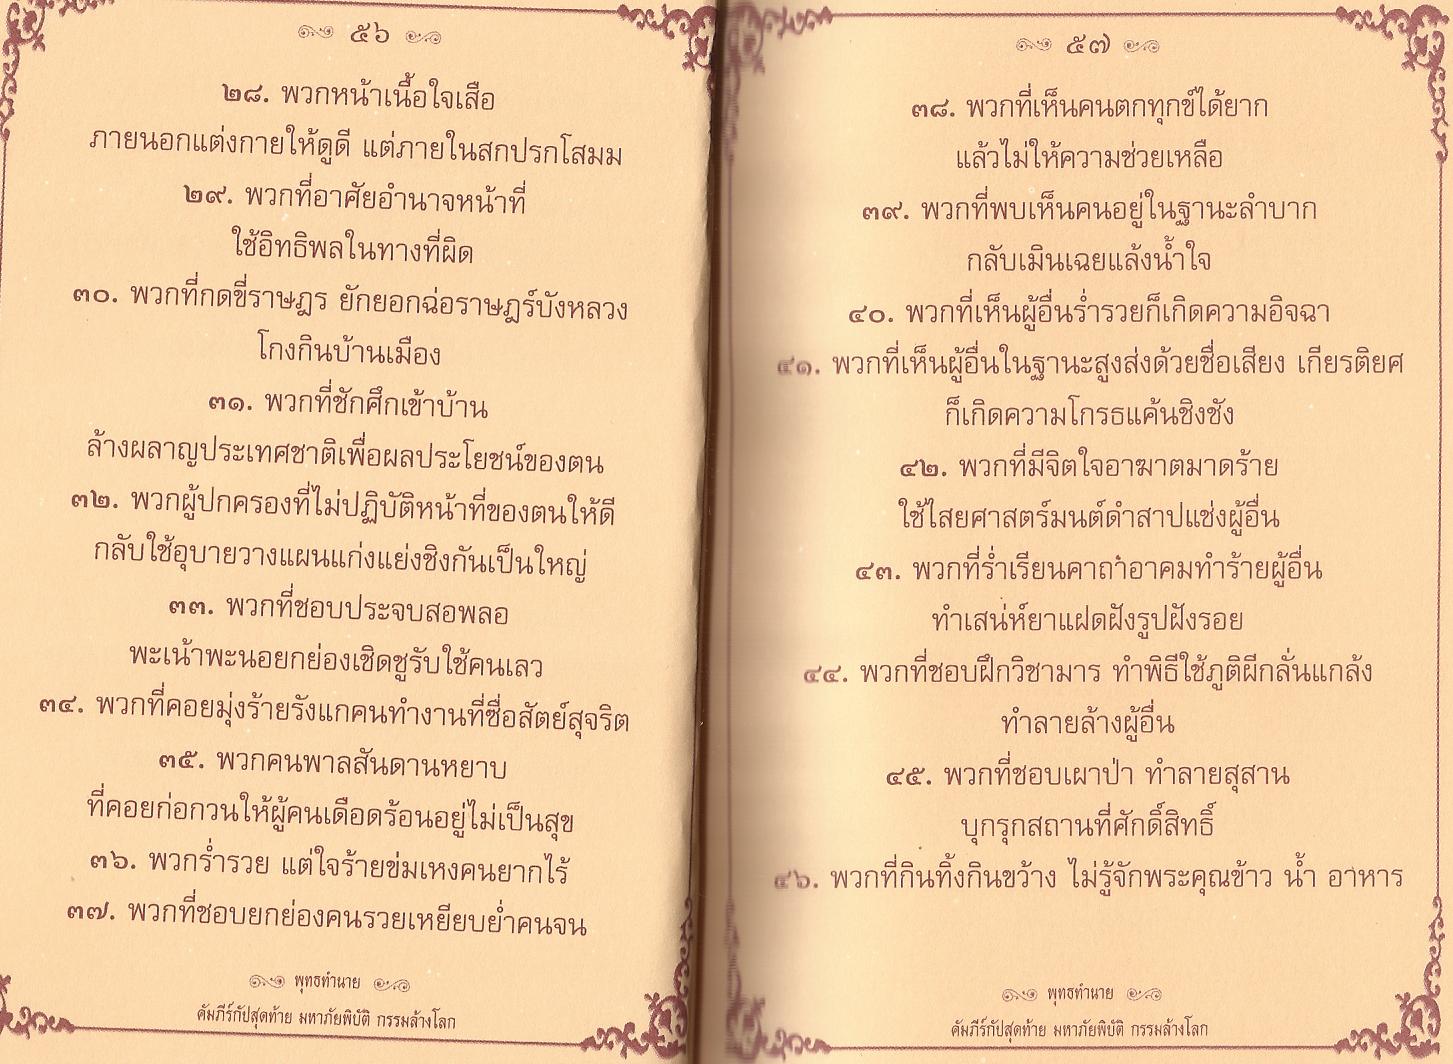 ๕๖
๒๘. พวกหน้าเนื้อใจเสือ
ภายนอกแต่งกายให้ดูดี แต่ภายในสกปรกโสมม
๒๙. พวกที่อาศัยอำนาจหน้าที่
ใช้อิทธิพลในทางที่ผิด
๓๐. พวกที่กดขี่ราษฎร ยักยอกฉ่อราษฎร์บังหลวง
โกงกินบ้านเมือง
๓๑. พวกที่ชักศึกเข้าบ้าน
ล้างผลาญประเทศชาติเพื่อผลประโยชน์ของตน
๓๒. พวกผู้ปกครองที่ไม่ปฏิบัติหน้าที่ของตนให้ดี
กลับใช้อุบายวางแผนแก่งแย่งชิงกันเป็นใหญ่
๓๓. พวกที่ชอบประจบสอพลอ
พะเน้าพะนอยกย่องเชิดชูรับใช้คนเลว
๓๔. พวกที่คอยมุ่งร้ายรังแกคนทำงานที่ซื่อสัตย์สุจริต
๓๕. พวกคนพาลสันดานหยาบ
ที่คอยก่อกวนให้ผู้คนเดือดร้อนอยู่ไม่เป็นสุข
๓๖. พวกร่ำรวย แต่ใจร้ายข่มเหงคนยากไร้
๓๗. พวกที่ชอบยกย่องคนรวยเหยียบย่ำคนจน
พุทธทำนาย
คัมภีร์กัปสุดท้าย มหาภัยพิบัติ กรรมล้างโลก
๕๗
๓๘. พวกที่เห็นคนตกทุกข์ได้ยาก
แล้วไม่ให้ความช่วยเหลือ
๓๙. พวกที่พบเห็นคนอยู่ในฐานะลำบาก
กลับเมินเฉยแล้งน้ำใจ
๔๐. พวกที่เห็นผู้อื่นร่ำรวยก็เกิดความอิจฉา
๔๑. พวกที่เห็นผู้อื่นในฐานะสูงส่งด้วยชื่อเสียง เกียรติยศ
ก็เกิดความโกรธแค้นชิงชัง
๔๒. พวกที่มีจิตใจอาฆาตมาดร้าย
ใช้ไสยศาสตร์มนต์ดำสาปแช่งผู้อื่น
๔๓. พวกที่ร่ำเรียนคาถาอาคมทำร้ายผู้อื่น
ทำเสน่ห์ยาแฝดฝังรูปฝังรอย
๔๔. พวกที่ชอบฝึกวิชามาร ทำพิธีใช้ภูติผีกลั่นแกล้ง
ทำลายล้างผู้อื่น
๔๕. พวกที่ชอบเผาป่า ทำลายสุสาน
บุกรุกสถานที่ศักดิ์สิทธิ์
๔๖. พวกที่กินทิ้งกินขว้าง ไม่รู้จักพระคุณข้าว น้ำ อาหาร
พุทธทำนาย
คัมภีร์กัปสุดท้าย มหาภัยพิบัติ กรรมล้างโลก